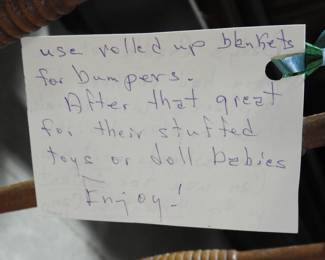 use rolled up blankets
for bumpers.
After that great
for their stuffed
toys or doll babies
Enjoy!